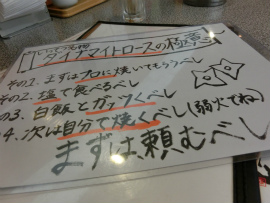 ダイナマイトロースの極意
その1. まずはプロに焼いてもらうべし
その2. 塩で食べるべし
の3. 白飯とガッつくべし
4. 次は自分で焼くべし(弱火でね)
まずは頼むべし